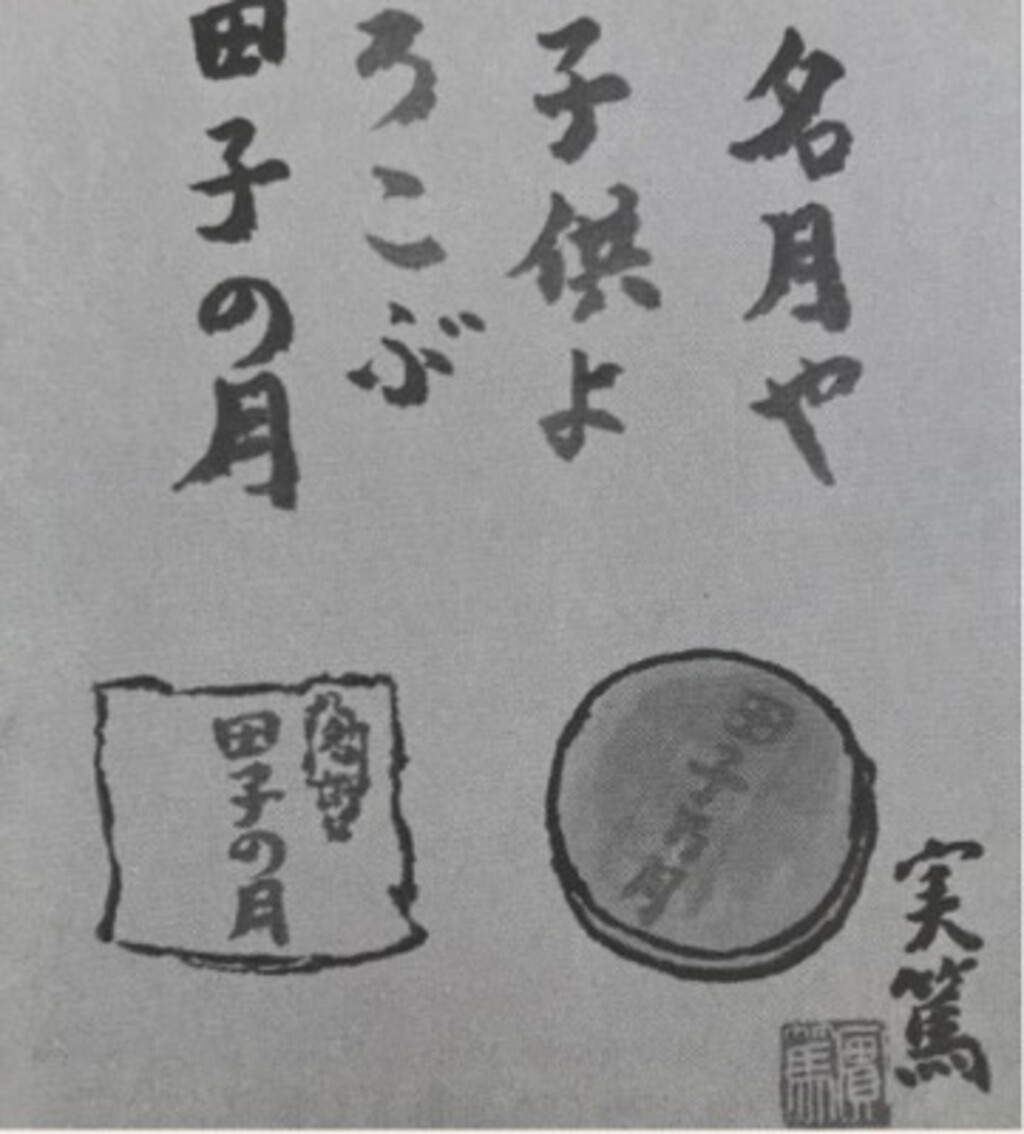 名月や
子供よ
ろこぶ
田子の月
実篤
實篤
田子乃月
田子の月